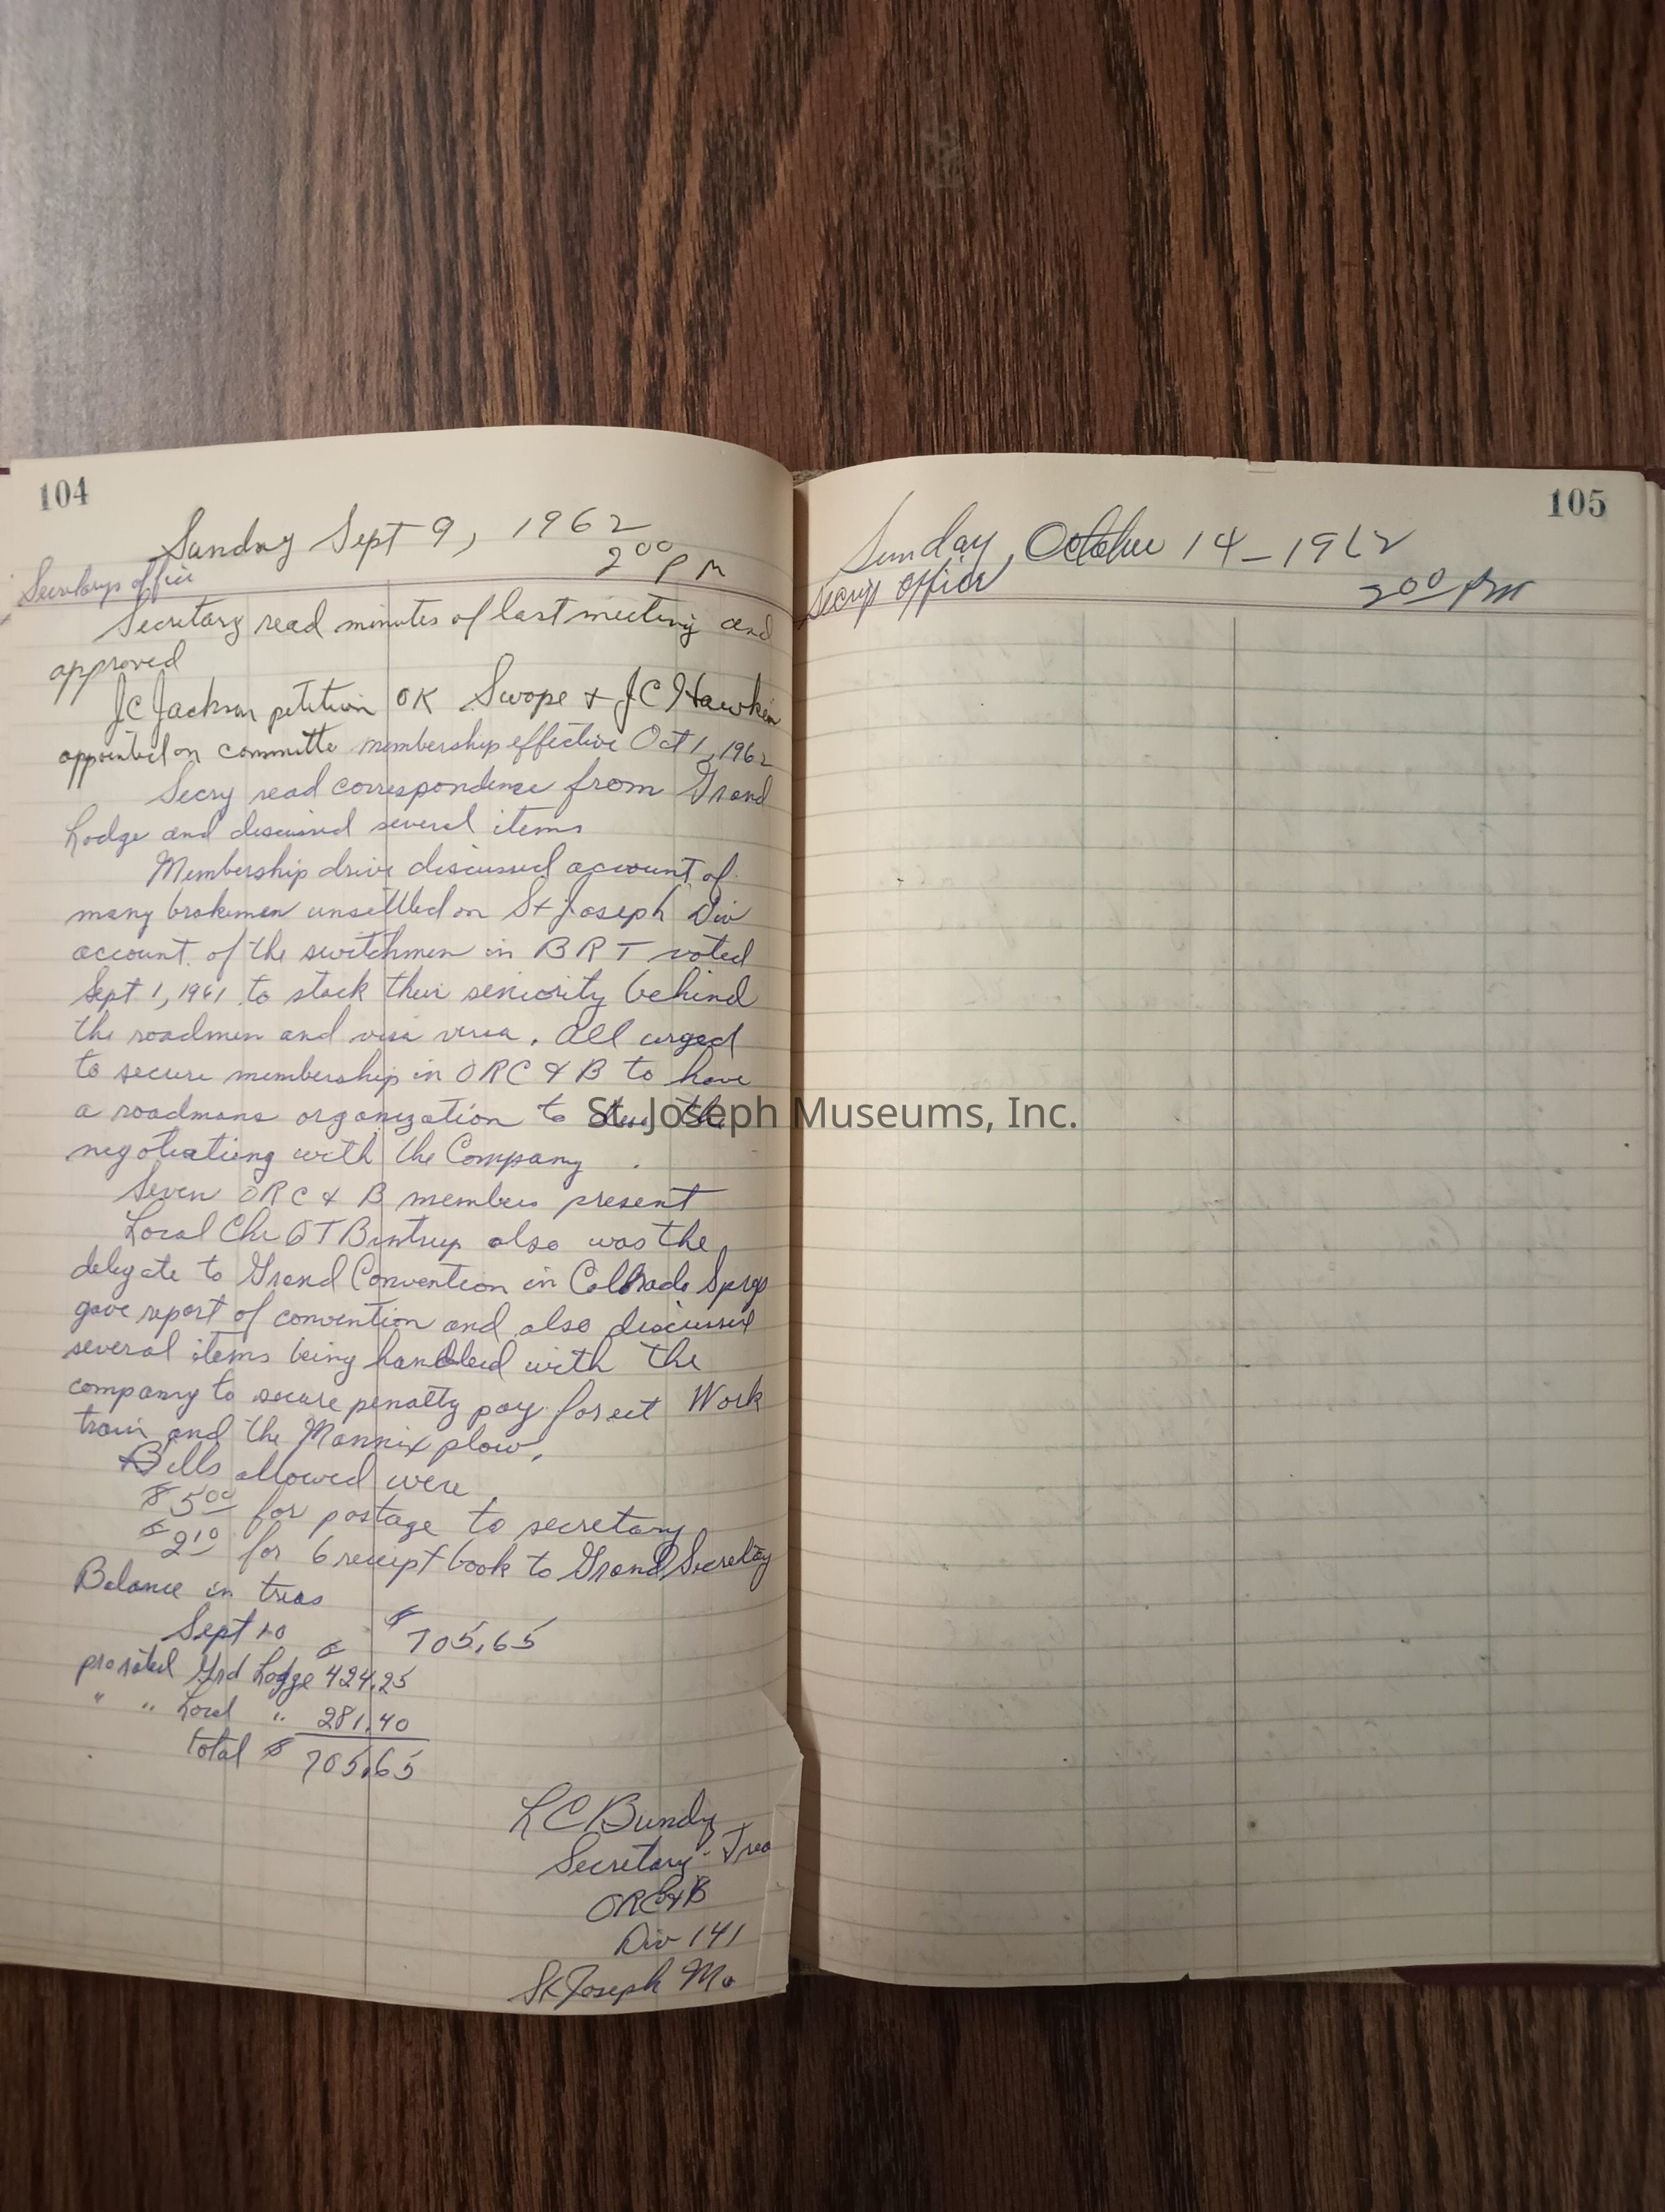 104
Sunday Sept 9, 1962
2 00 PM
Secretarys office
Secretary read minutes of last meeting and
approved
JC Jackson petition OK Swope + JC Hawkin
appointed on committe membership effective Oct 1, 1962
Secry read correspondence from Grand
Lodge and discussed several items
Membership drive discussed account of
many brakemen unsettled on St Joseph Div
account of the switchmen in BRT voted
Sept 1, 1961 to stack their seniority behind
the roadmen and visa versa. All urged
to secure membership in ORC & B to have
a roadmans organization to the
negotiating with the Company
Seven ORC & B members present
Local Chr OT Bintrup also was the
delegate to Grand Convention in Colorado Sprgs
gave report of convention and also discussed
several items being handled with the
company to secure penalty pay for Work
train and the Mannix plow,
Bills allowed were
$ 5 00 for postage to secretary
$ 2 10 for 6 receipt book to Grand Secretary
Balance in treas
Sept 10 $ 705,65
prorated Grd Lodge $ 424,25
" " Local " 281,40
total $ 705,65
L C Bundy
Secretary-Trea
ORC&B
Div 141
St Joseph Mo
105
Sunday, October 14 - 1962
Secrys office
2 00 PM
St. Joseph Museums, Inc.